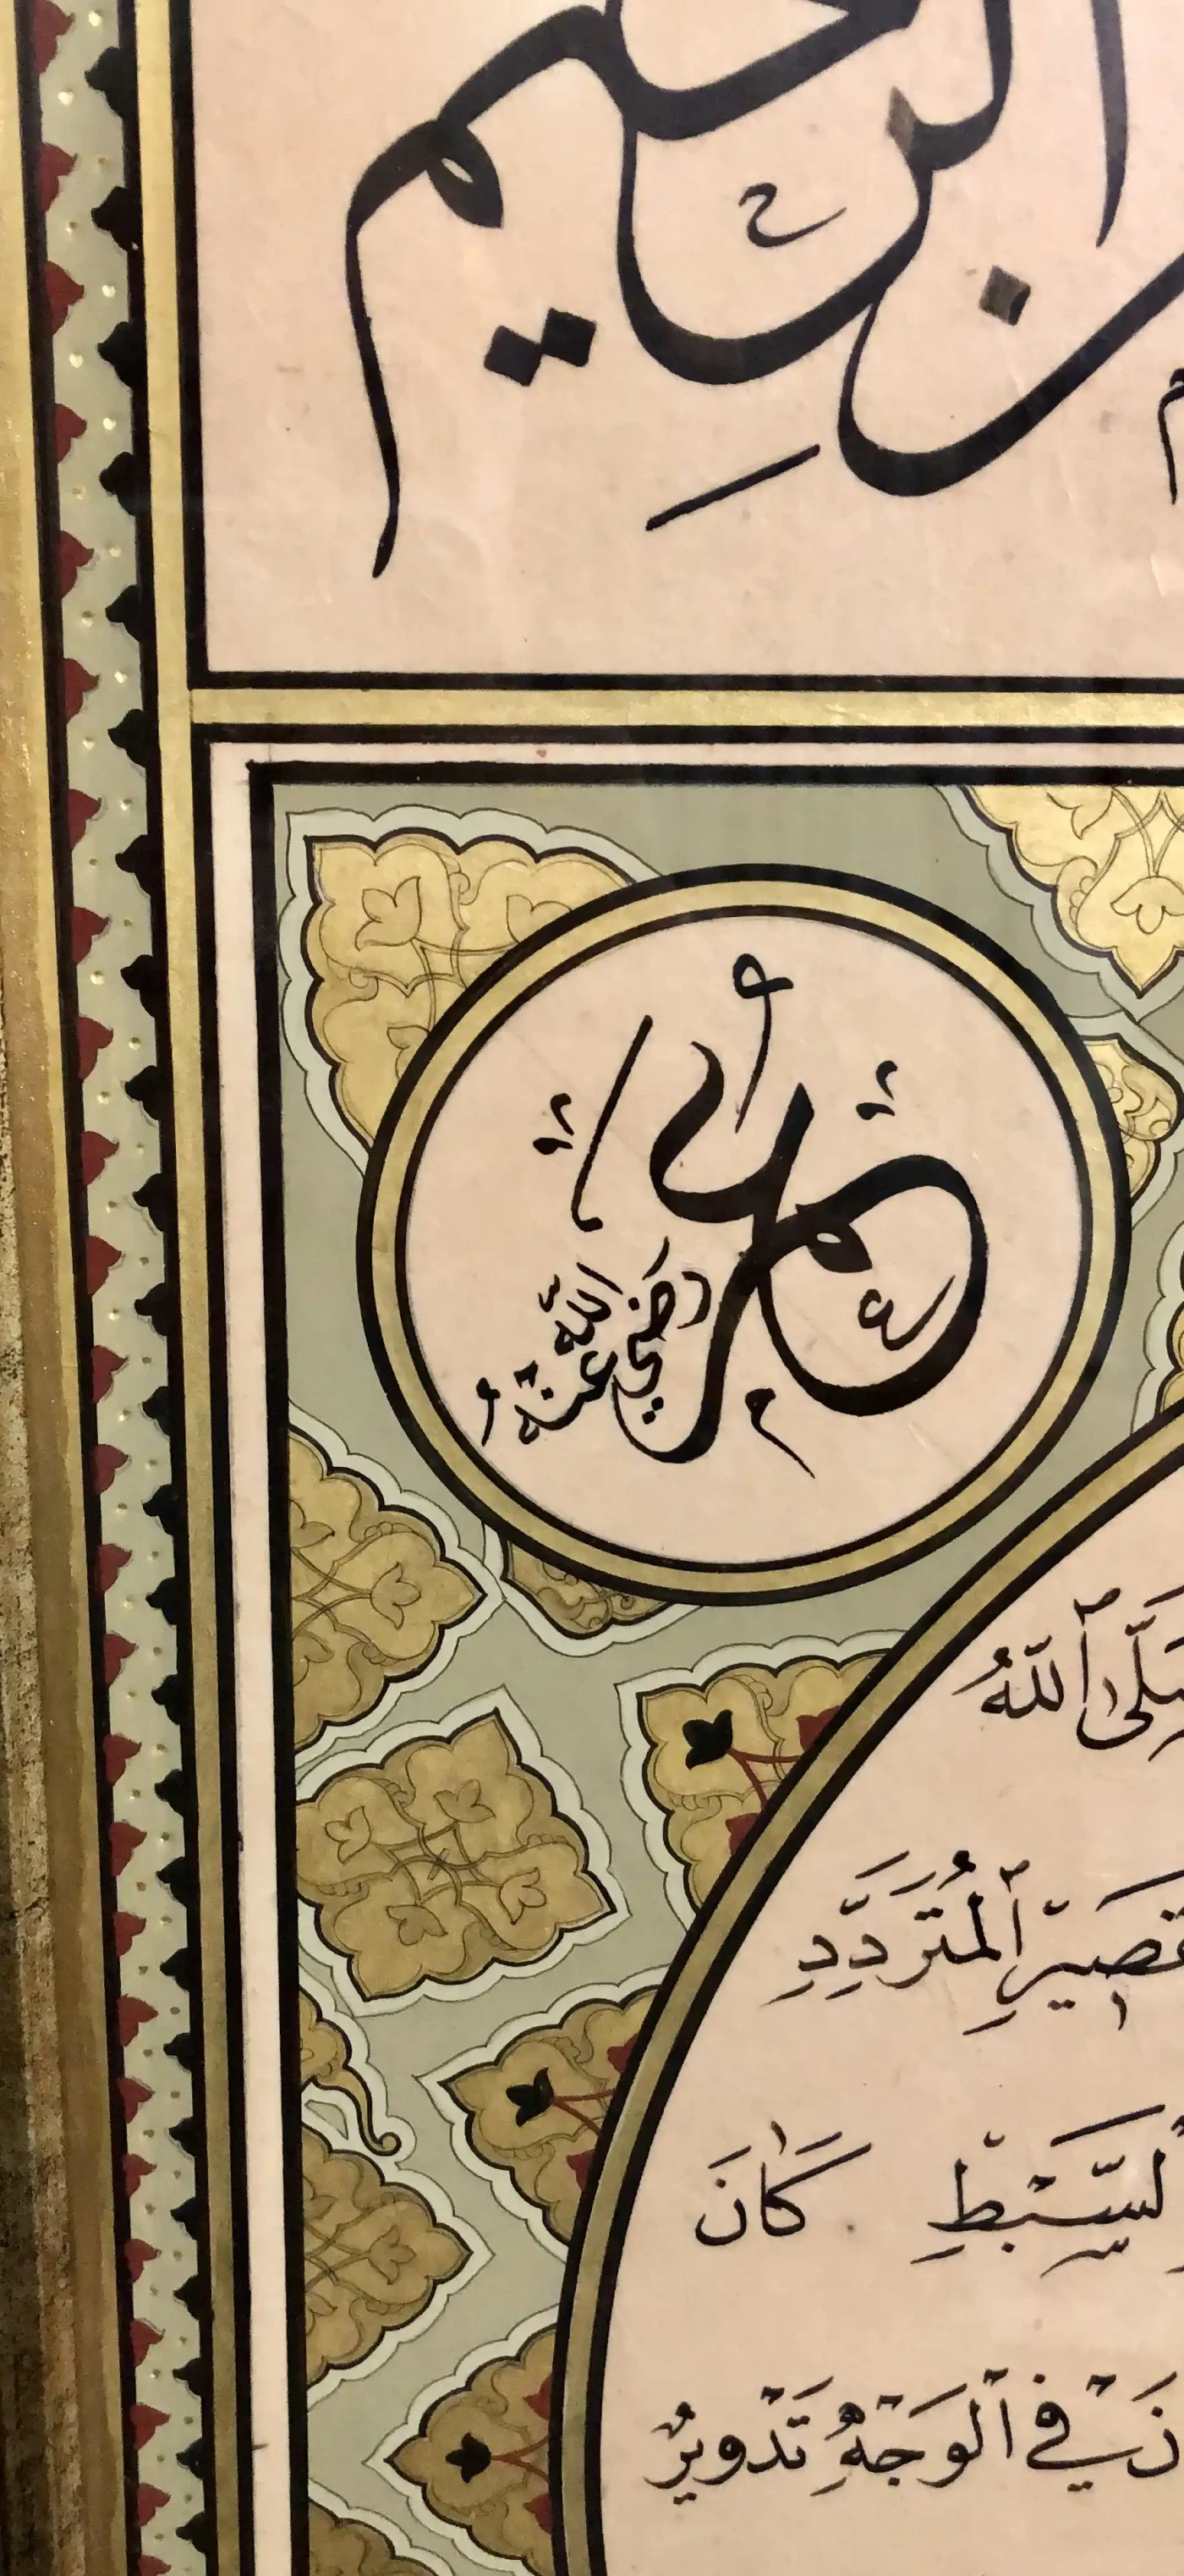 الرحيم
عمر
رَضِيَ اللّٰه عَنْهُ
صَلَّى ٱللّٰهُ
قَصِيرِ ٱلْمُتَرَدِّدِ
لسَّبْطِ كَانَ
نَ فِي ٱلْوَجْهِ تَدْوِيرٌ